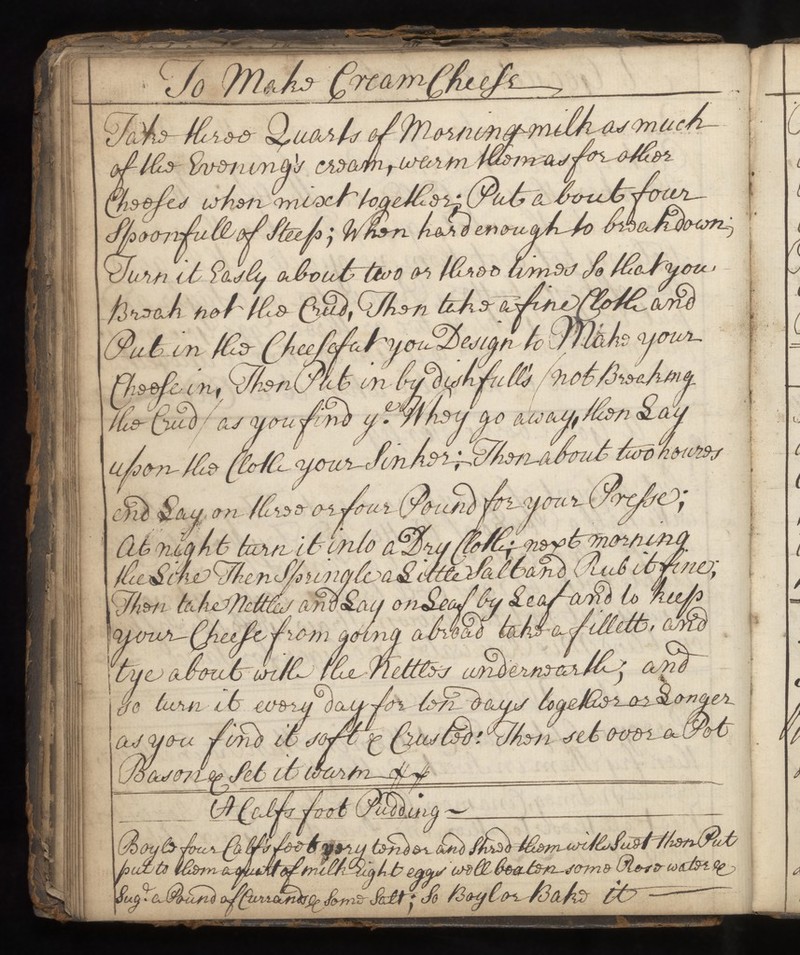 To Make Cream Cheese
Take three Quarts of Morning milk as much
of the Evening's cream, warm them as for other
Cheeses when mixt together; Put a bout four
Spoonfull of Steep; When hard enough to break down;
Turn it Easly about two or three times So that you
Break not the Crud, Then take a fine Cloth and
Put in the Cheesefat you Design to Make your
Cheese in, Then Put in by dishfull's (not Breaking
the Crud) as you find ye. Whey go away, then Lay
upon the Cloth your Sinker; Then about two houres
end Lay on three or four Pound for your Presse;
At night turn it into a Dry Cloth; next morning
the Like Then Springle a Little Salt and Rub it fine;
Then take Nettles and Lay on Leaf by Leaf and to keep
your Cheese from going abroad take a fillett, and
tye about with the Nettles underneath; and
so turn it every day for ten days together or Longer
as you find it soft & Crusted: Then set over a Pot
Bason & Set it warm
A Calfs foot Pudding
Boyle four Calf's foot very tender and Shred them with Suet then Put
put to them a quart of milk Eight eggs well beaten some Rose water &
Sugr. a Pound of Currands & Some Salt; So Boyl or Bake it